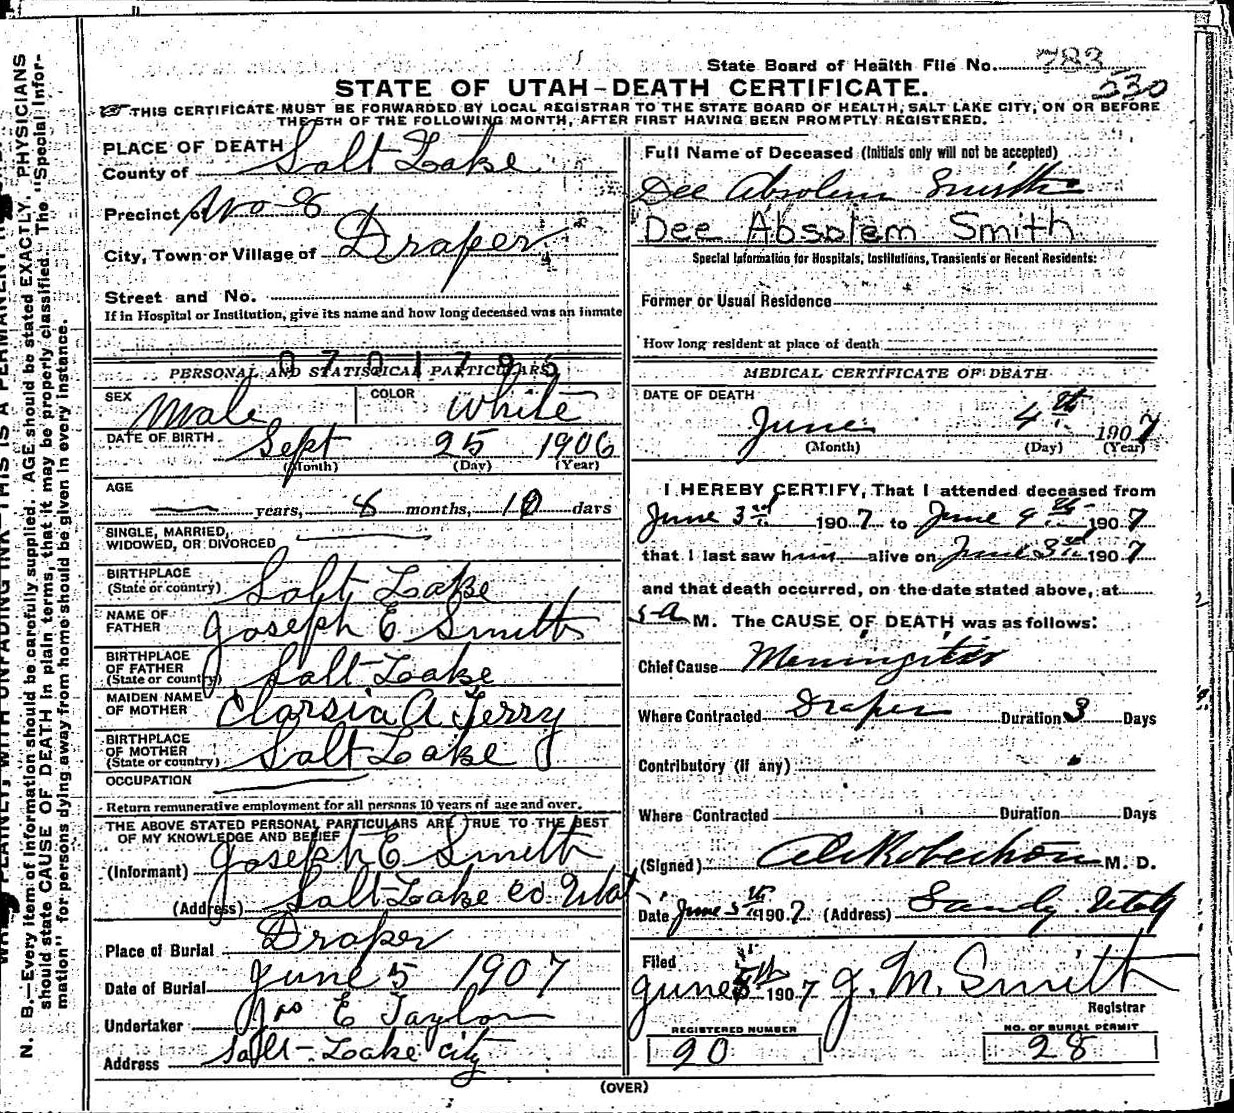 State Board of Health File No. 783
530
STATE OF UTAH-DEATH CERTIFICATE.
THIS CERTIFICATE MUST BE FORWARDED BY LOCAL REGISTRAR TO THE STATE BOARD OF HEALTH, SALT LAKE CITY, ON OR BEFORE
THE 5TH OF THE FOLLOWING MONTH, AFTER FIRST HAVING BEEN PROMPTLY REGISTERED.
PLACE OF DEATH
County of Salt Lake
Precinct of No 8
City, Town or Village of Draper
Street and No.
If in Hospital or Institution, give its name and how long deceased was an inmate
0701795
PERSONAL AND STATISTICAL PARTICULARS
SEX Male COLOR White
DATE OF BIRTH Sept 25 1906
(Month) (Day) (Year)
AGE
years, 8 months, 10 days
SINGLE, MARRIED,
WIDOWED, OR DIVORCED
BIRTHPLACE
(State or country) Salt Lake
NAME OF
FATHER Joseph E Smith
BIRTHPLACE
OF FATHER
(State or country) Salt Lake
MAIDEN NAME
OF MOTHER Clarsia A Terry
BIRTHPLACE
OF MOTHER
(State or country) Salt Lake
OCCUPATION
Return remunerative employment for all persons 10 years of age and over.
THE ABOVE STATED PERSONAL PARTICULARS ARE TRUE TO THE BEST
OF MY KNOWLEDGE AND BELIEF
(Informant) Joseph E Smith
(Address) Salt Lake co Utah
Place of Burial Draper
Date of Burial June 5 1907
Undertaker Jos E Taylor
Address Salt-Lake city
Full Name of Deceased (Initials only will not be accepted)
Dee Absolem Smith
Dee Absolem Smith
Special Information for Hospitals, Institutions, Transients or Recent Residents:
Former or Usual Residence
How long resident at place of death
MEDICAL CERTIFICATE OF DEATH
DATE OF DEATH
June 4th 1907
(Month) (Day) (Year)
I HEREBY CERTIFY, That I attended deceased from
June 3rd 1907 to June 4th 1907
that I last saw him alive on June 3rd 1907
and that death occurred, on the date stated above, at
5-A M. The CAUSE OF DEATH was as follows:
Chief Cause Meningitis
Where Contracted Draper Duration 3 Days
Contributory (if any)
Where Contracted Duration Days
(Signed) Robertson M. D.
Date June 5th 1907 (Address) Sandy Utah
Filed
June 5th 1907 J. M. Smith
Registrar
REGISTERED NUMBER
90
NO. OF BURIAL PERMIT
28
(OVER)
N. B.—Every item of information should be carefully supplied. AGE should be stated EXACTLY. PHYSICIANS
should state CAUSE OF DEATH in plain terms, that it may be properly classified. The "Special Infor-
mation" for persons dying away from home should be given in every instance.
PLAINLY, WITH UNFADING INK—THIS IS A PERMANENT